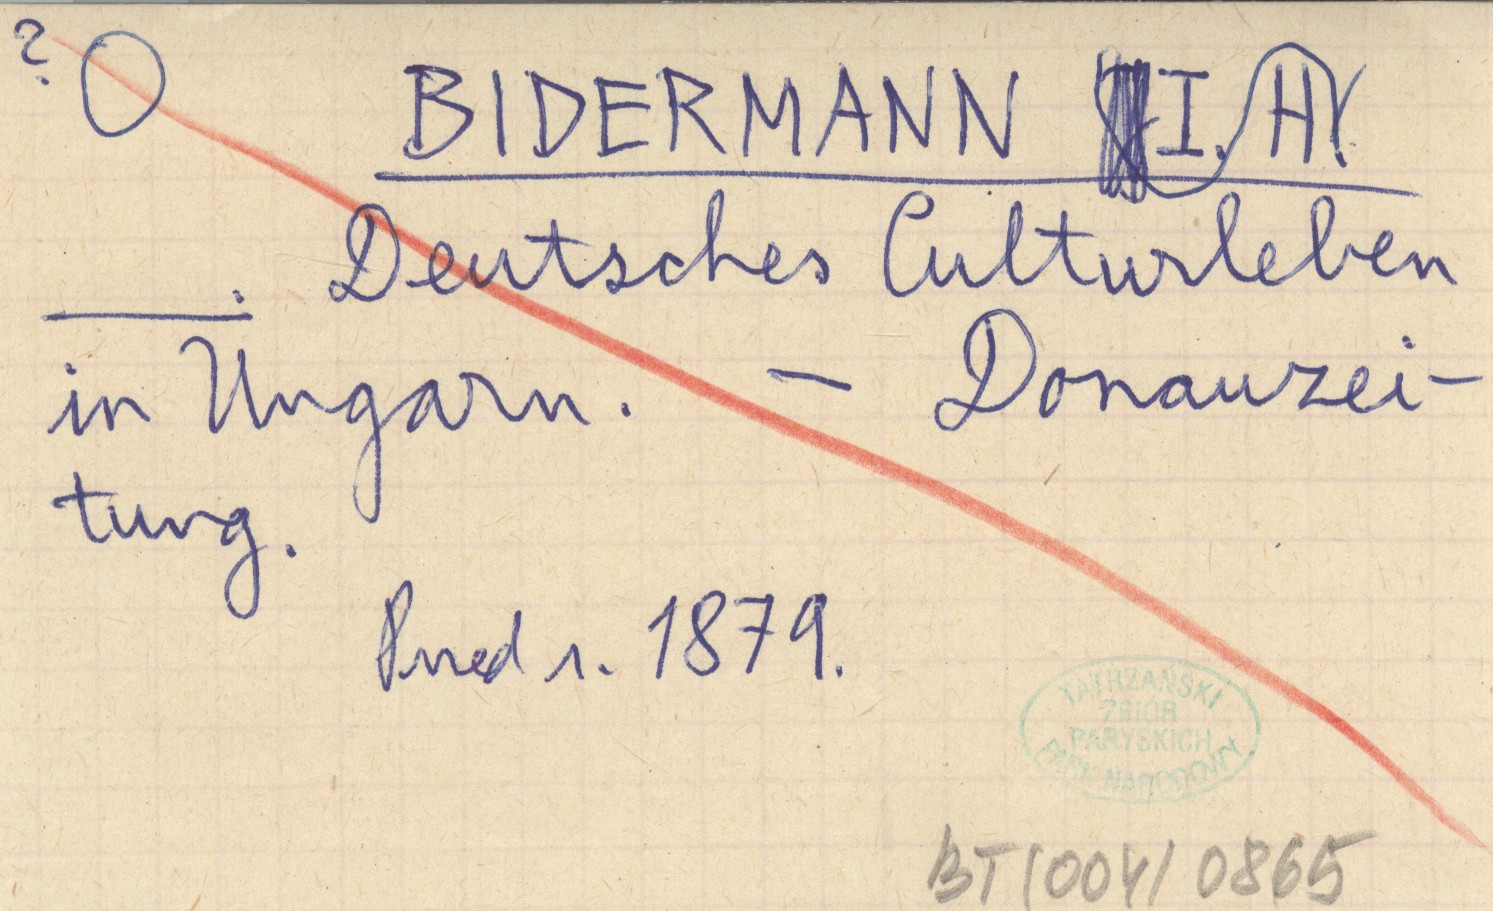 ? O BIDERMANN I. H.
____. Deutsches Culturleben
in Ungarn. — Donauzei-
tung.
Przed r. 1879.
TATRZAŃSKI
ZBIÓR
PARYSKICH
PARK NARODOWY
BT(004) 0865